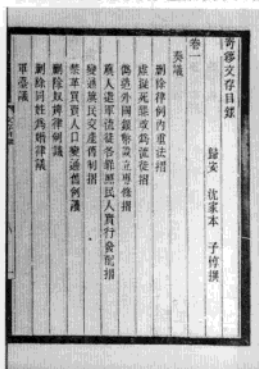 寄簃文存目錄
歸安 沈家本 子惇撰
卷一
奏議
刪除律例內重法摺
虛擬死罪改爲流徒摺
偽造外國銀幣設立專條摺
旗人遣軍流徒各罪照民人實行發配摺
變通旗民交產舊制摺
禁革買賣人口變通舊例議
刪除奴婢律例議
刪除同姓爲婚律議
軍臺議